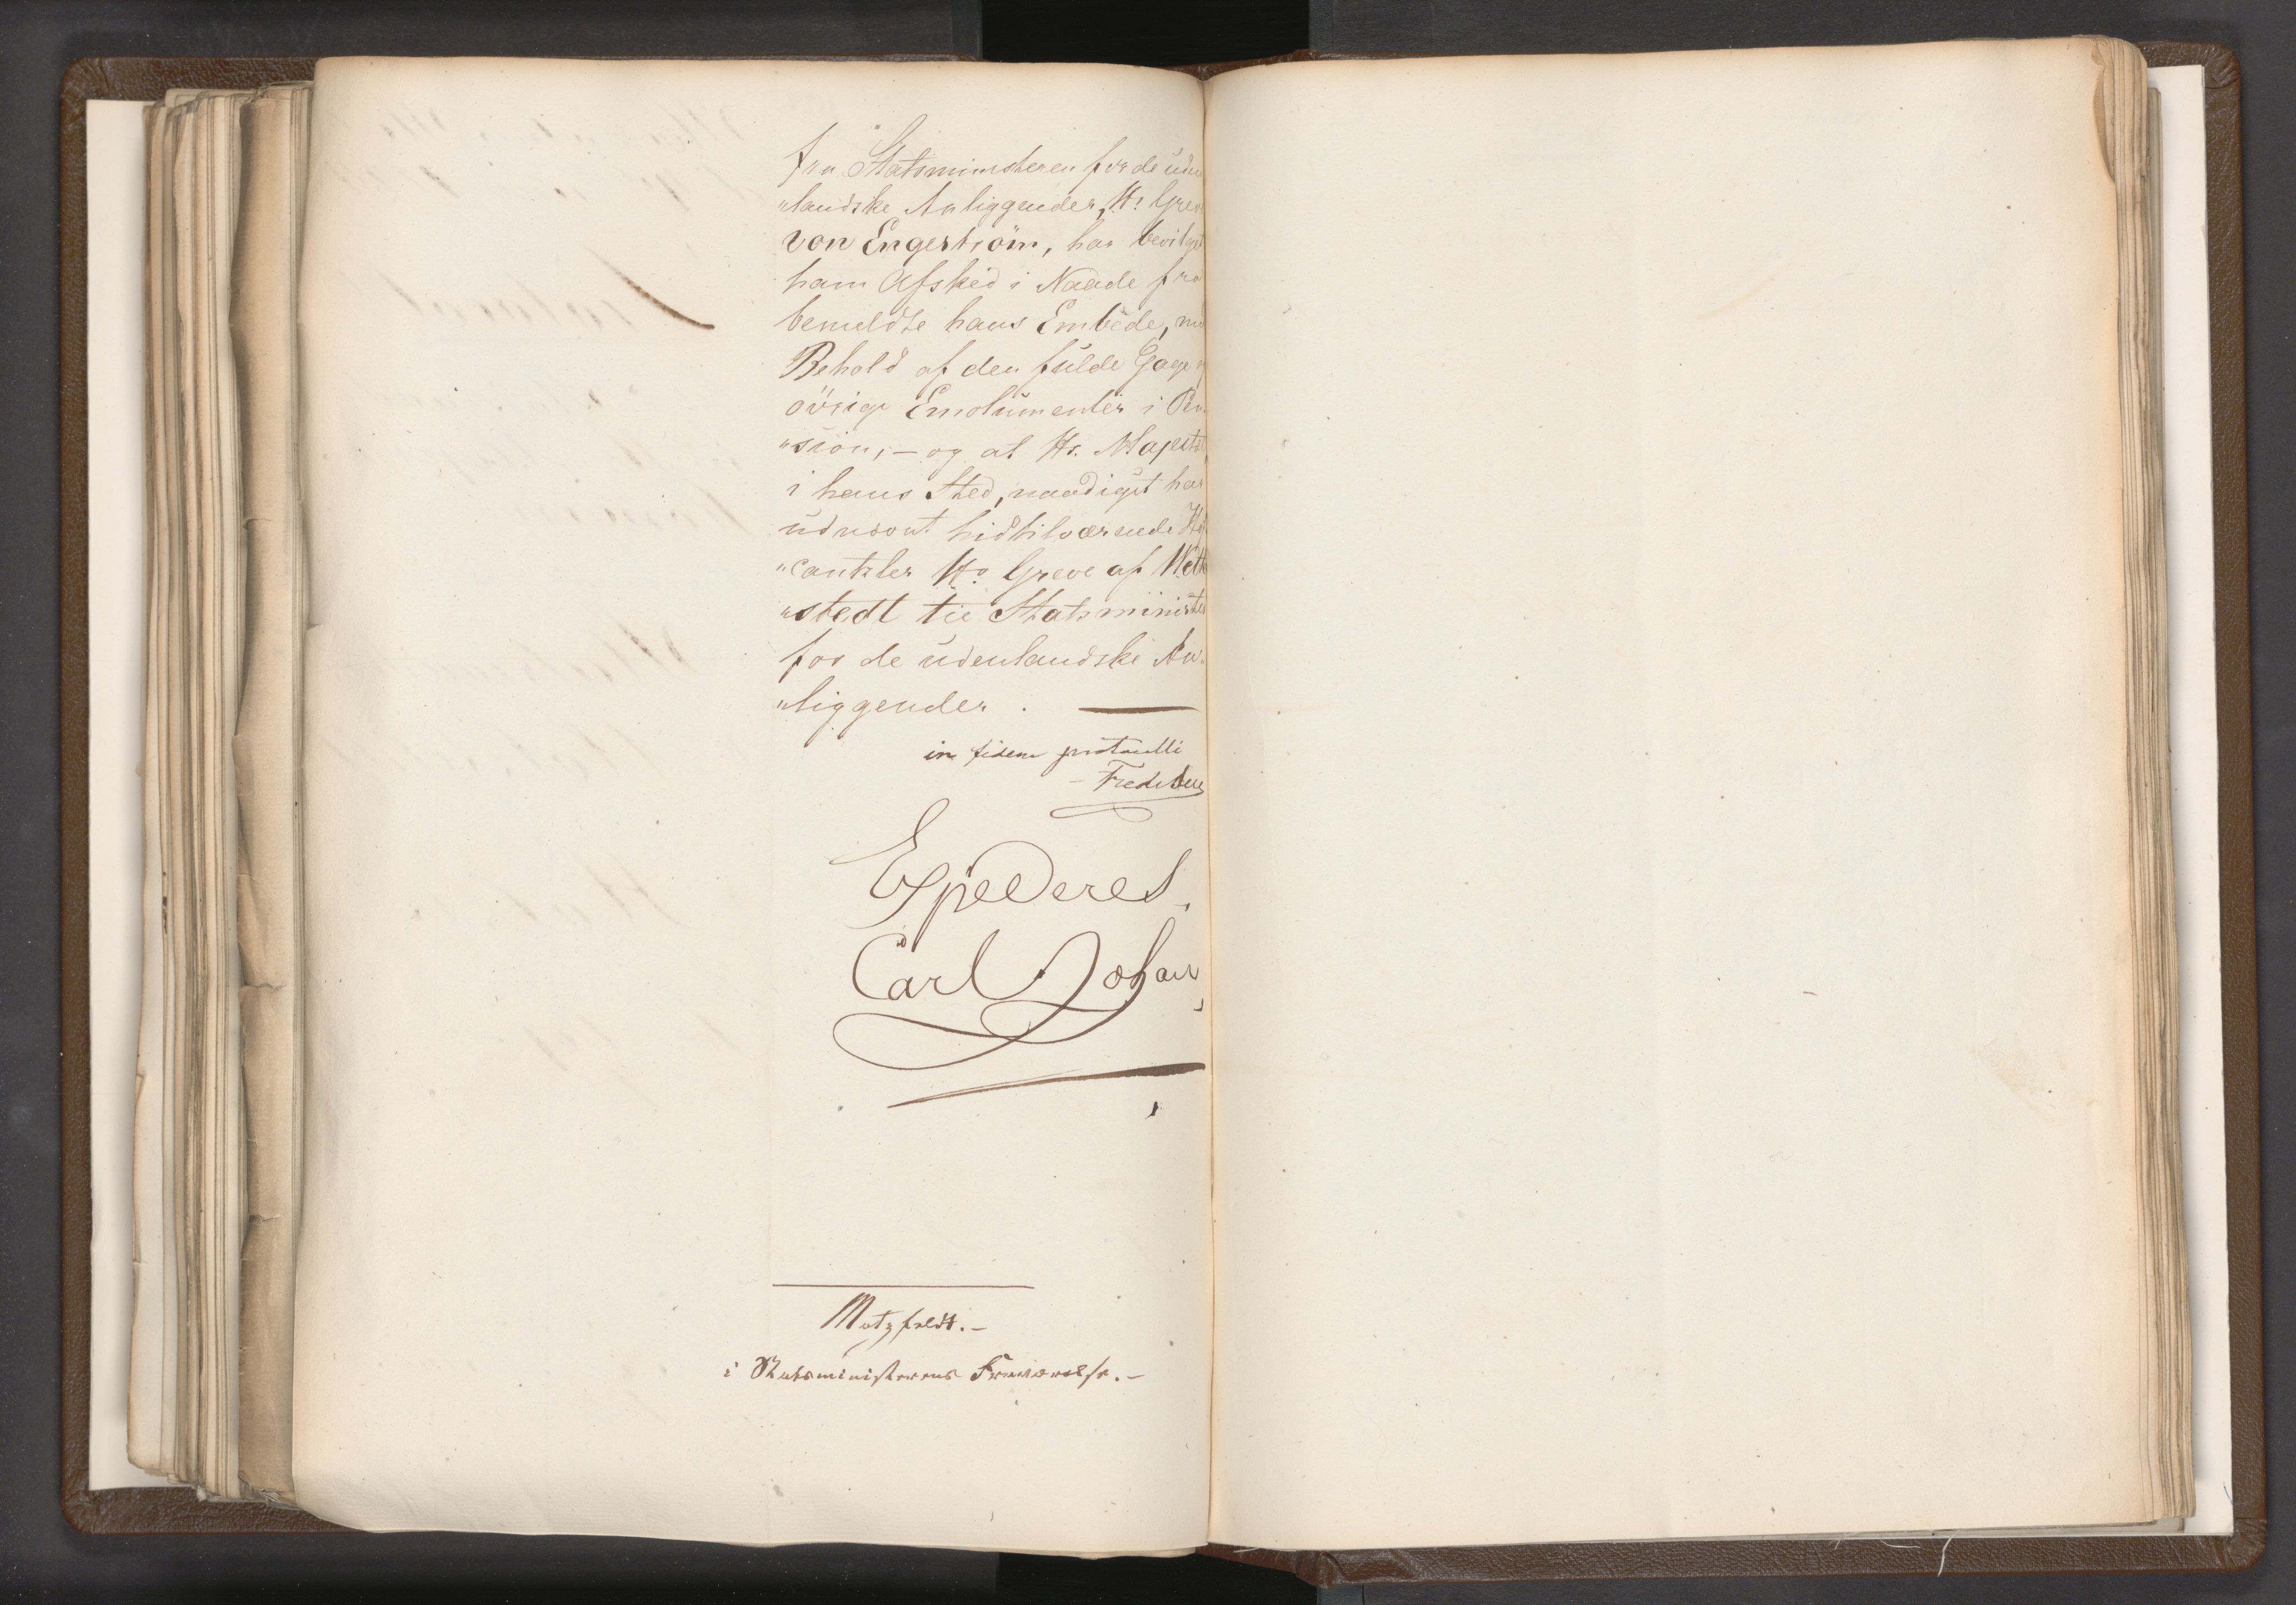 fra Statsministeren for de uden
„landske Anliggender, Hr. Greve
von Engeström, har bevilget
ham Afsked i Naade fra
bemeldte hans Embede, med
Behold af den fulde Gage og
övrige Emolumenter i Pen
„sion; – og at Hs. Majestet
i hans Sted, naadigst har
udnævnt hidtilværende Hof
„cantzler Hr. Greve af Wetter
„stedt til Statsminister
for de udenlandske An-
„liggender.
in fidem protocolli
Fred. Due
Expederes.
Carl Johan
Motzfeldt.–
i Statsministerens Fraværelse.–